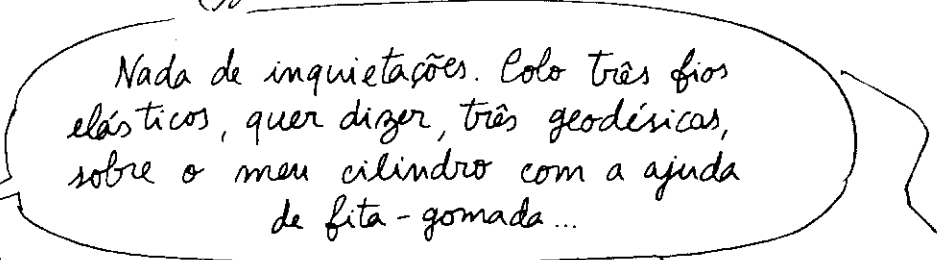 Nada de inquietações. Colo três fios
elásticos, quer dizer, três geodésicas,
sobre o meu cilindro com a ajuda
de fita-gomada...